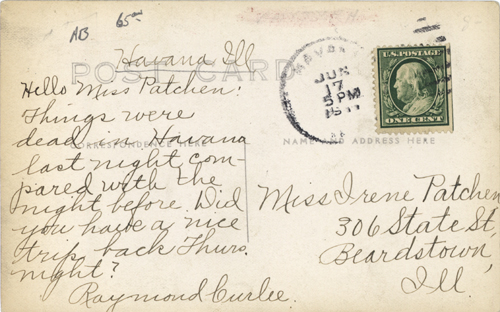 AB 65
Havana Ill
POST CARD
Hello Miss Patchen:
Things were
dead in Havana
last night com-
pared with the
night before. Did
you have a nice
trip back Thurs.
night?
Raymond Curlee.
CORRESPONDENCE HERE
NAME AND ADDRESS HERE
HAVANA
JUN
17
5 PM
1911
U.S. POSTAGE
ONE CENT
Miss Irene Patchen
306 State St,
Beardstown,
Ill,